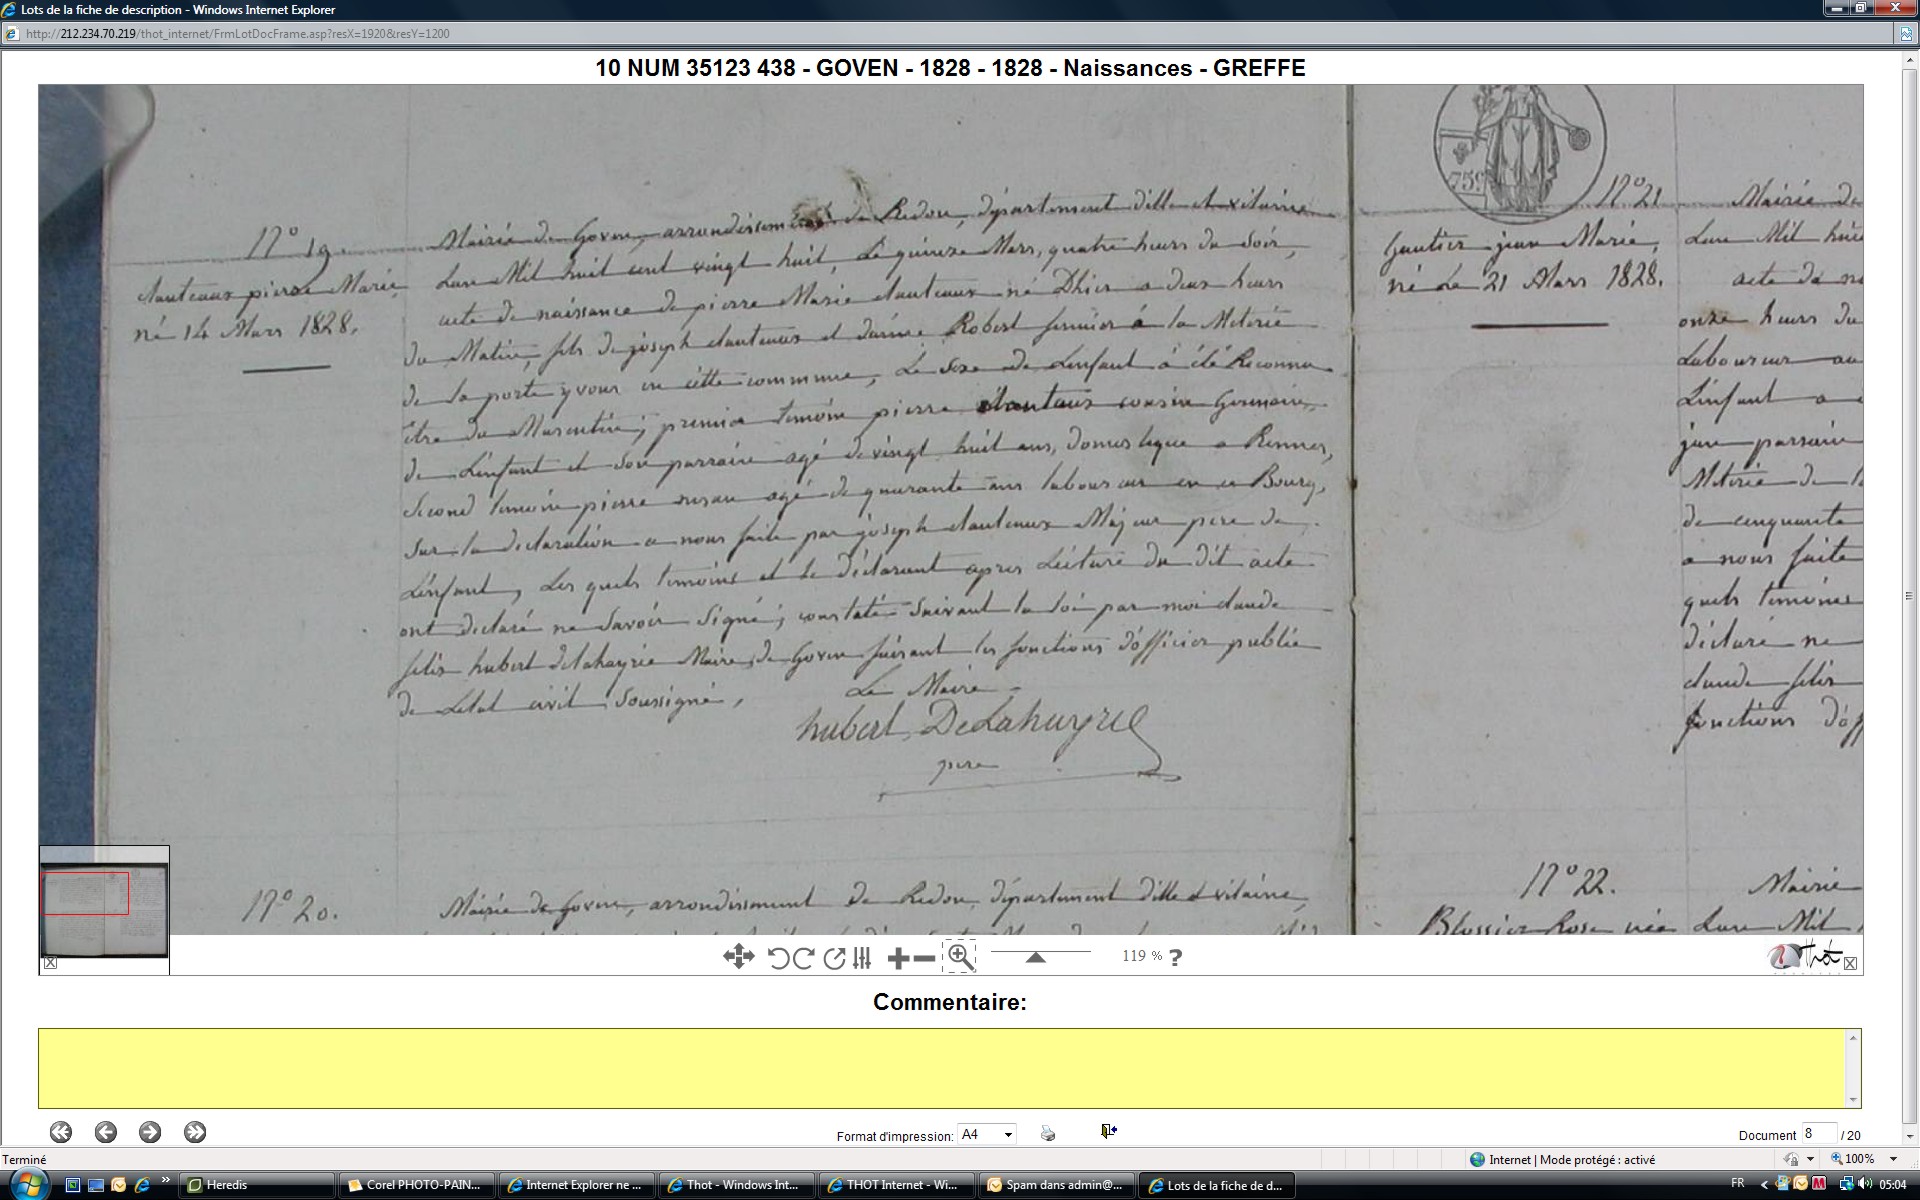 Lots de la fiche de description - Windows Internet Explorer
http://212.234.70.219/thot_internet/FrmLotDocFrame.asp?resX=1920&resY=1200
10 NUM 35123 438 - GOVEN - 1828 - 1828 - Naissances - GREFFE
N° 19.
pierre Marie
né 14 Mars 1828.
Mairie de Goven, arrondissement de Redon, département dille et vilaine
Lan Mil huit cent vingt huit, Le quinze Mars, quatre heurs du Soir,
acte de naissance de pierre Marie né Dhier a deux heurs
du Matin, fils de joseph et Robert fermier à la Metérie
de la porte yvon en cette commune, Le Sexe de Lenfant à été Reconnu
être du Masculin; premier temoin pierre cousin Germain,
de Lenfant et Son parrain agé de vingt huit ans, domestique a Rennes,
Second temoin pierre agé de quarante ans laboureur en ce Bourg,
Sur la declaration a nous faite par joseph Majeur pere de
Lenfant, Les quels temoins et le déclarant apres Lecture du dit acte
ont declaré ne Savoir Signé; constaté Suivant la loi par moi claude
felix hubert delahayrie Maire de Goven faisant les fonctions dofficier public
de Letat civil Soussigné,
Le Maire
hubert DeLahayrie
pere
N° 20.
Mairie de Goven, arrondissement de Redon, département dille et vilaine,
75c
N° 21
Gautier jean Marie,
né Le 21 Mars 1828.
Mairie de
Lan Mil huit
acte de na
onze heurs du
Laboureur au
Lenfant a
jean parrain
Metérie de la
de cinquante
a nous faite
quels temoins
déclaré ne
claude felix
fonctions doff
N° 22.
Blossier Rose née
Mairie
Lan Mil
119 % ?
Thot
Commentaire:
Format d'impression: A4
Document 8 / 20
Terminé
Internet | Mode protégé : activé
100%
Heredis
Corel PHOTO-PAIN...
Internet Explorer ne ...
Thot - Windows Int...
THOT Internet - Wi...
Spam dans admin@...
Lots de la fiche de d...
FR
05:04